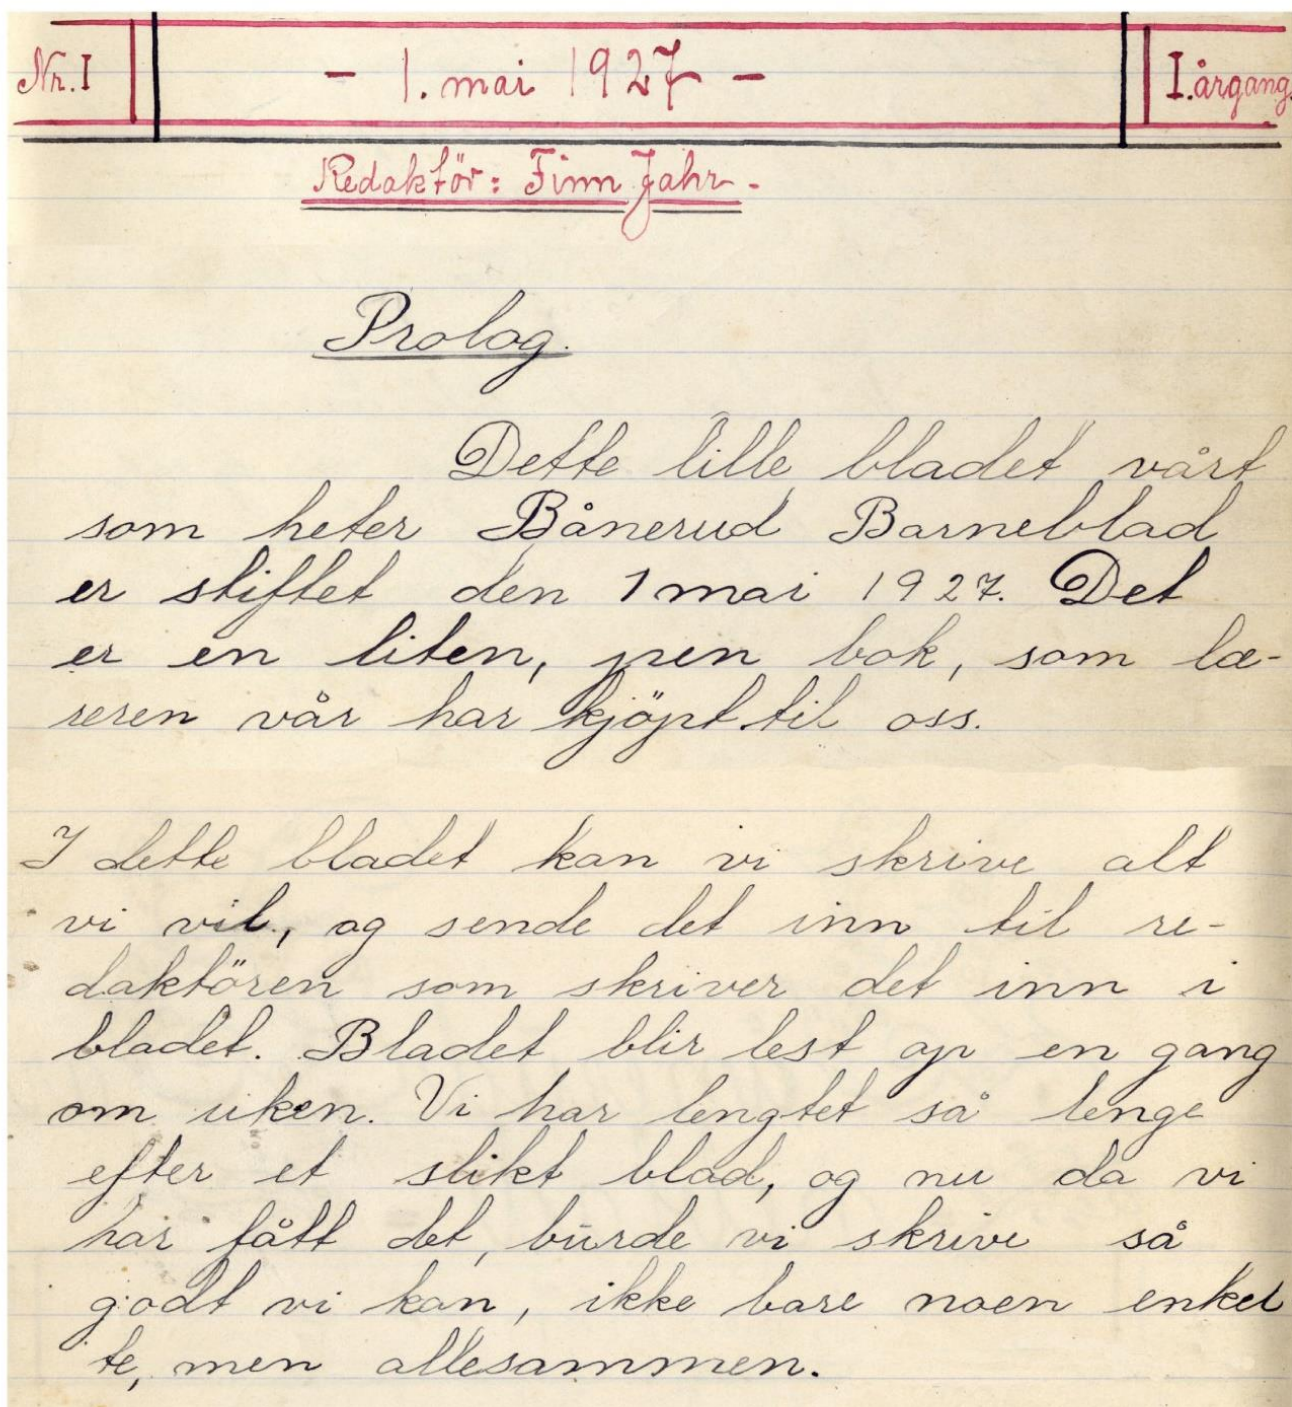 Nr. I - 1. mai 1927 - I. årgang.
Redaktör: Finn Jahr.
Prolog.
Dette lille bladet vårt
som heter Bånerud Barneblad
er stiftet den 1 mai 1927. Det
er en liten, pen bok, som læ-
reren vår har kjöpt til oss.
I dette bladet kan vi skrive alt
vi vil, og sende det inn til re-
daktören som skriver det inn i
bladet. Bladet blir lest op en gang
om uken. Vi har lengtet så lenge
efter et slikt blad, og nu da vi
har fått det, burde vi skrive så
godt vi kan, ikke bare noen enkel
te, men allesammen.